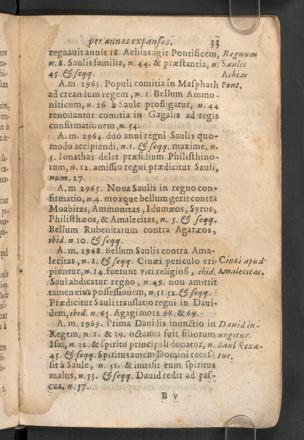 per annos expansos. 33
regnauit annis 18. Achias agit Pontificem, Regnum
n. 8. Saulis familia, n. 44. & præstantia, n. Saulis
45. & seqq. Achias
A.m. 2963. Populi comitia in Masphath Pont.
ad creandum regem, n. 1. Bellum Ammo-
niticum, n. 26. à Saule profligatur, n. 44
renouantur comitia in Gagalis ad regis
confirmationem, n. 54.
A. m. 2964. duo anni regni Saulis quo-
modo accipiendi, n. 1. & seqq. maxime, n.
5. Ionathas delet præsidium Philisthino-
rum, n. 12. amissio regni prædicitur Sauli,
num. 27.
A. m. 2965. Noua Saulis in regno con-
firmatio, n. 4. mox que bellum gerit contra
Moabitas, Ammonitas, Idumæos, Syros,
Philisthæos, & Amalecitas, n. 5. & seqq.
Bellum Rubenitarum contra Agaræos,
ibid. n. 10. & seqq.
A. m. 2968. Bellum Saulis contra Ama-
lecitas, n. 2. & seqq. Cinæi periculo eri- Cinæi apud
piuntur, n. 14. fuerunt viri religiosi, ibid. Amalecitas.
Saul abdicatur regno, n. 49. non amittit
tamen eius possessionem, n. 51. 52. & seqq.
Prædicitur Sauli translatio regni in Daui-
dem, ibid. n. 65. Agagi mors 68. & 69.
A. m. 2969. Prima Dauidis inunctio in Dauid in-
Regem, n. 1. & 29. octauus fuit filiorum ungitur.
Isai, n. 32. & spiritu principali donatur, n. Saul vexa-
45. & seqq. Spiritus autem Domini reces- tur.
sit à Saule, n. 51. & inuasit eum spiritus
malus, n. 53. & seqq. Dauid redit ad pas-
cua, n. 57.
B v